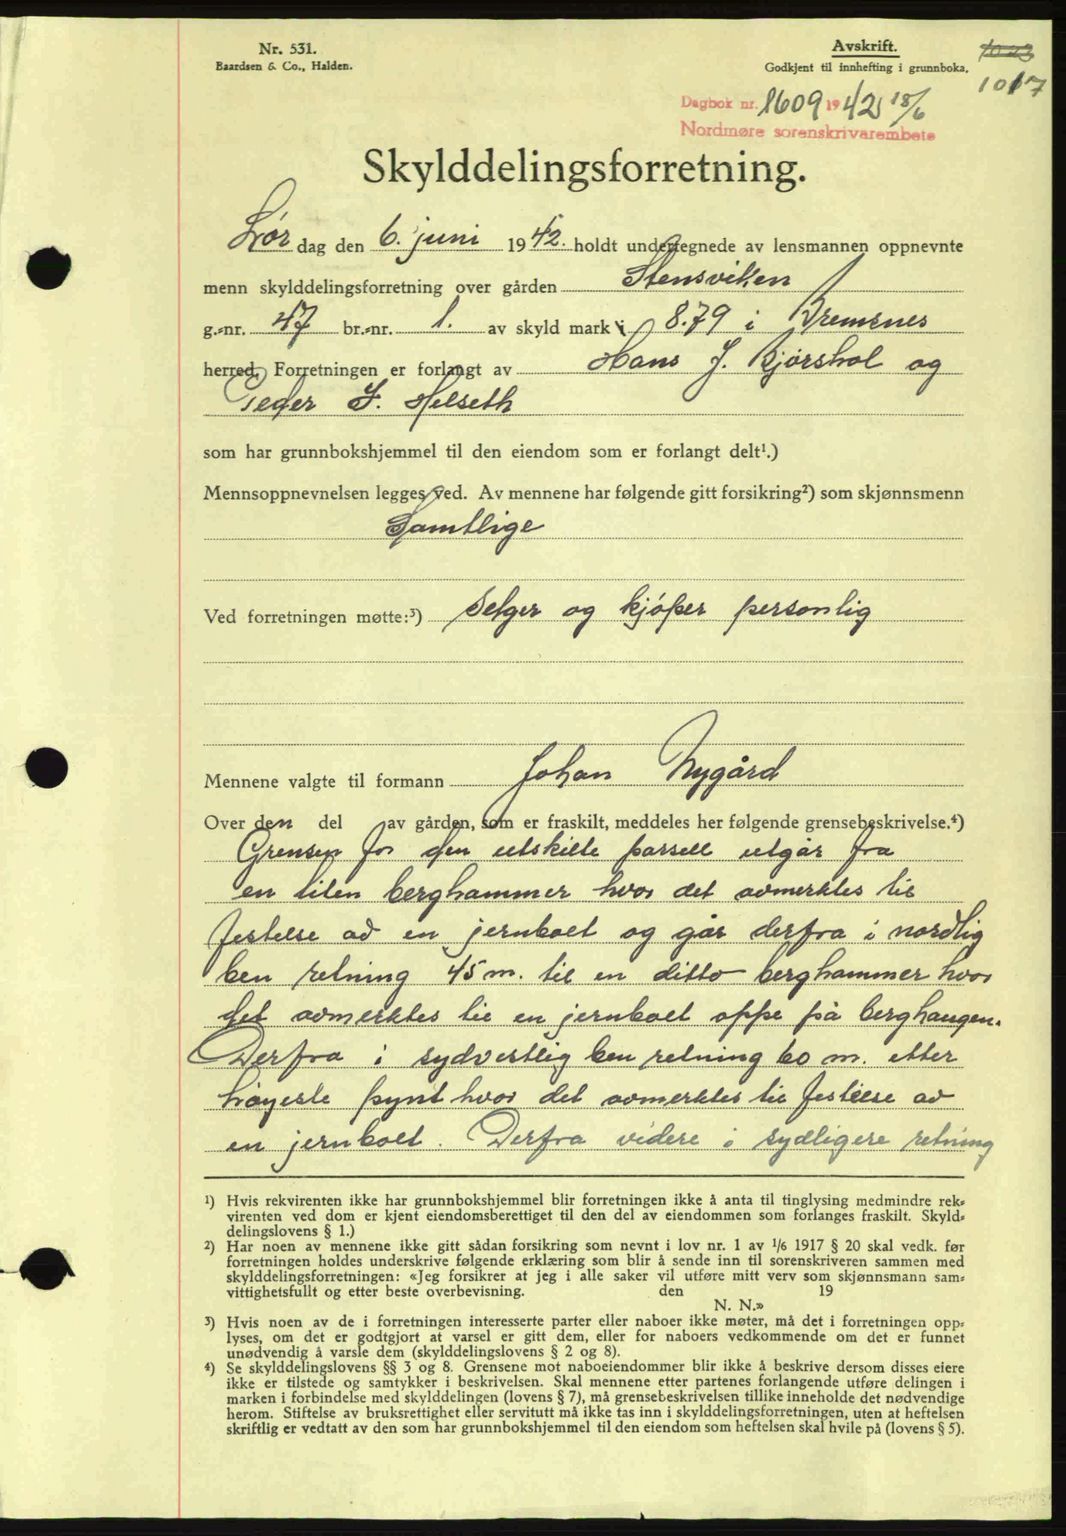 Nr. 531.
Baardsen & Co., Halden.
Avskrift.
Godkjent til innhefting i grunnboka.
1017
Dagbok nr. 1609 1942 18/6
Nordmøre sorenskrivarembete
Skylddelingsforretning.
Lør dag den 6. juni 1942. holdt undertegnede av lensmannen oppnevnte
menn skylddelingsforretning over gården Stensviken
g.-nr. 47 br.-nr. 1. av skyld mark 8.79 i Bremsnes
herred. Forretningen er forlangt av Hans J. Bjørshol og
Peder I. Helseth
som har grunnbokshjemmel til den eiendom som er forlangt delt¹.)
Mennsoppnevnelsen legges ved. Av mennene har følgende gitt forsikring²) som skjønnsmenn
Samtlige
Ved forretningen møtte:³) Selger og kjøper personlig
Mennene valgte til formann Johan Nygård
Over den del av gården, som er fraskilt, meddeles her følgende grensebeskrivelse.⁴)
Grensen for den utskilte parsell utgår fra
en liten berghammer hvor det avmerktes til
festelse av en jernbolt og går derfra i nordlig
ben retning 45 m. til en ditto berghammer hvor
det avmerktes til en jernbolt oppe på berghaugen.
Derfra i sydvestlig ben retning 60 m. etter
høyeste pynt hvor det avmerktes til festelse av
en jernbolt. Derfra videre i sydligere retning
¹) Hvis rekvirenten ikke har grunnbokshjemmel blir forretningen ikke å anta til tinglysing medmindre rek-
virenten ved dom er kjent eiendomsberettiget til den del av eiendommen som forlanges fraskilt. Skyld-
delingslovens § 1.)
²) Har noen av mennene ikke gitt sådan forsikring som nevnt i lov nr. 1 av 1/6 1917 § 20 skal vedk. før
forretningen holdes underskrive følgende erklæring som blir å sende inn til sorenskriveren sammen med
skylddelingsforretningen: «Jeg forsikrer at jeg i alle saker vil utføre mitt verv som skjønnsmann sam-
vittighetsfullt og etter beste overbevisning. den 19
N. N.»
³) Hvis noen av de i forretningen interesserte parter eller naboer ikke møter, må det i forretningen opp-
lyses, om det er godtgjort at varsel er gitt dem, eller for naboers vedkommende om det er funnet
unødvendig å varsle dem (skylddelingslovens § 2 og 8).
⁴) Se skylddelingslovens §§ 3 og 8. Grensene mot naboeiendommer blir ikke å beskrive dersom disses eiere
ikke er tilstede og samtykker i beskrivelsen. Skal mennene etter partenes forlangende utføre delingen i
marken i forbindelse med skylddelingen (lovens § 7), må grensebeskrivelsen tillike inneholde det nødvendige
herom. Stiftelse av bruksrettighet eller servitutt må ikke tas inn i skylddelingsforretningen, uten at heftelsen
skriftlig er vedtatt av den som har grunnbokshjemmel til den eiendom som heftelsen skal hvile på (lovens § 5).